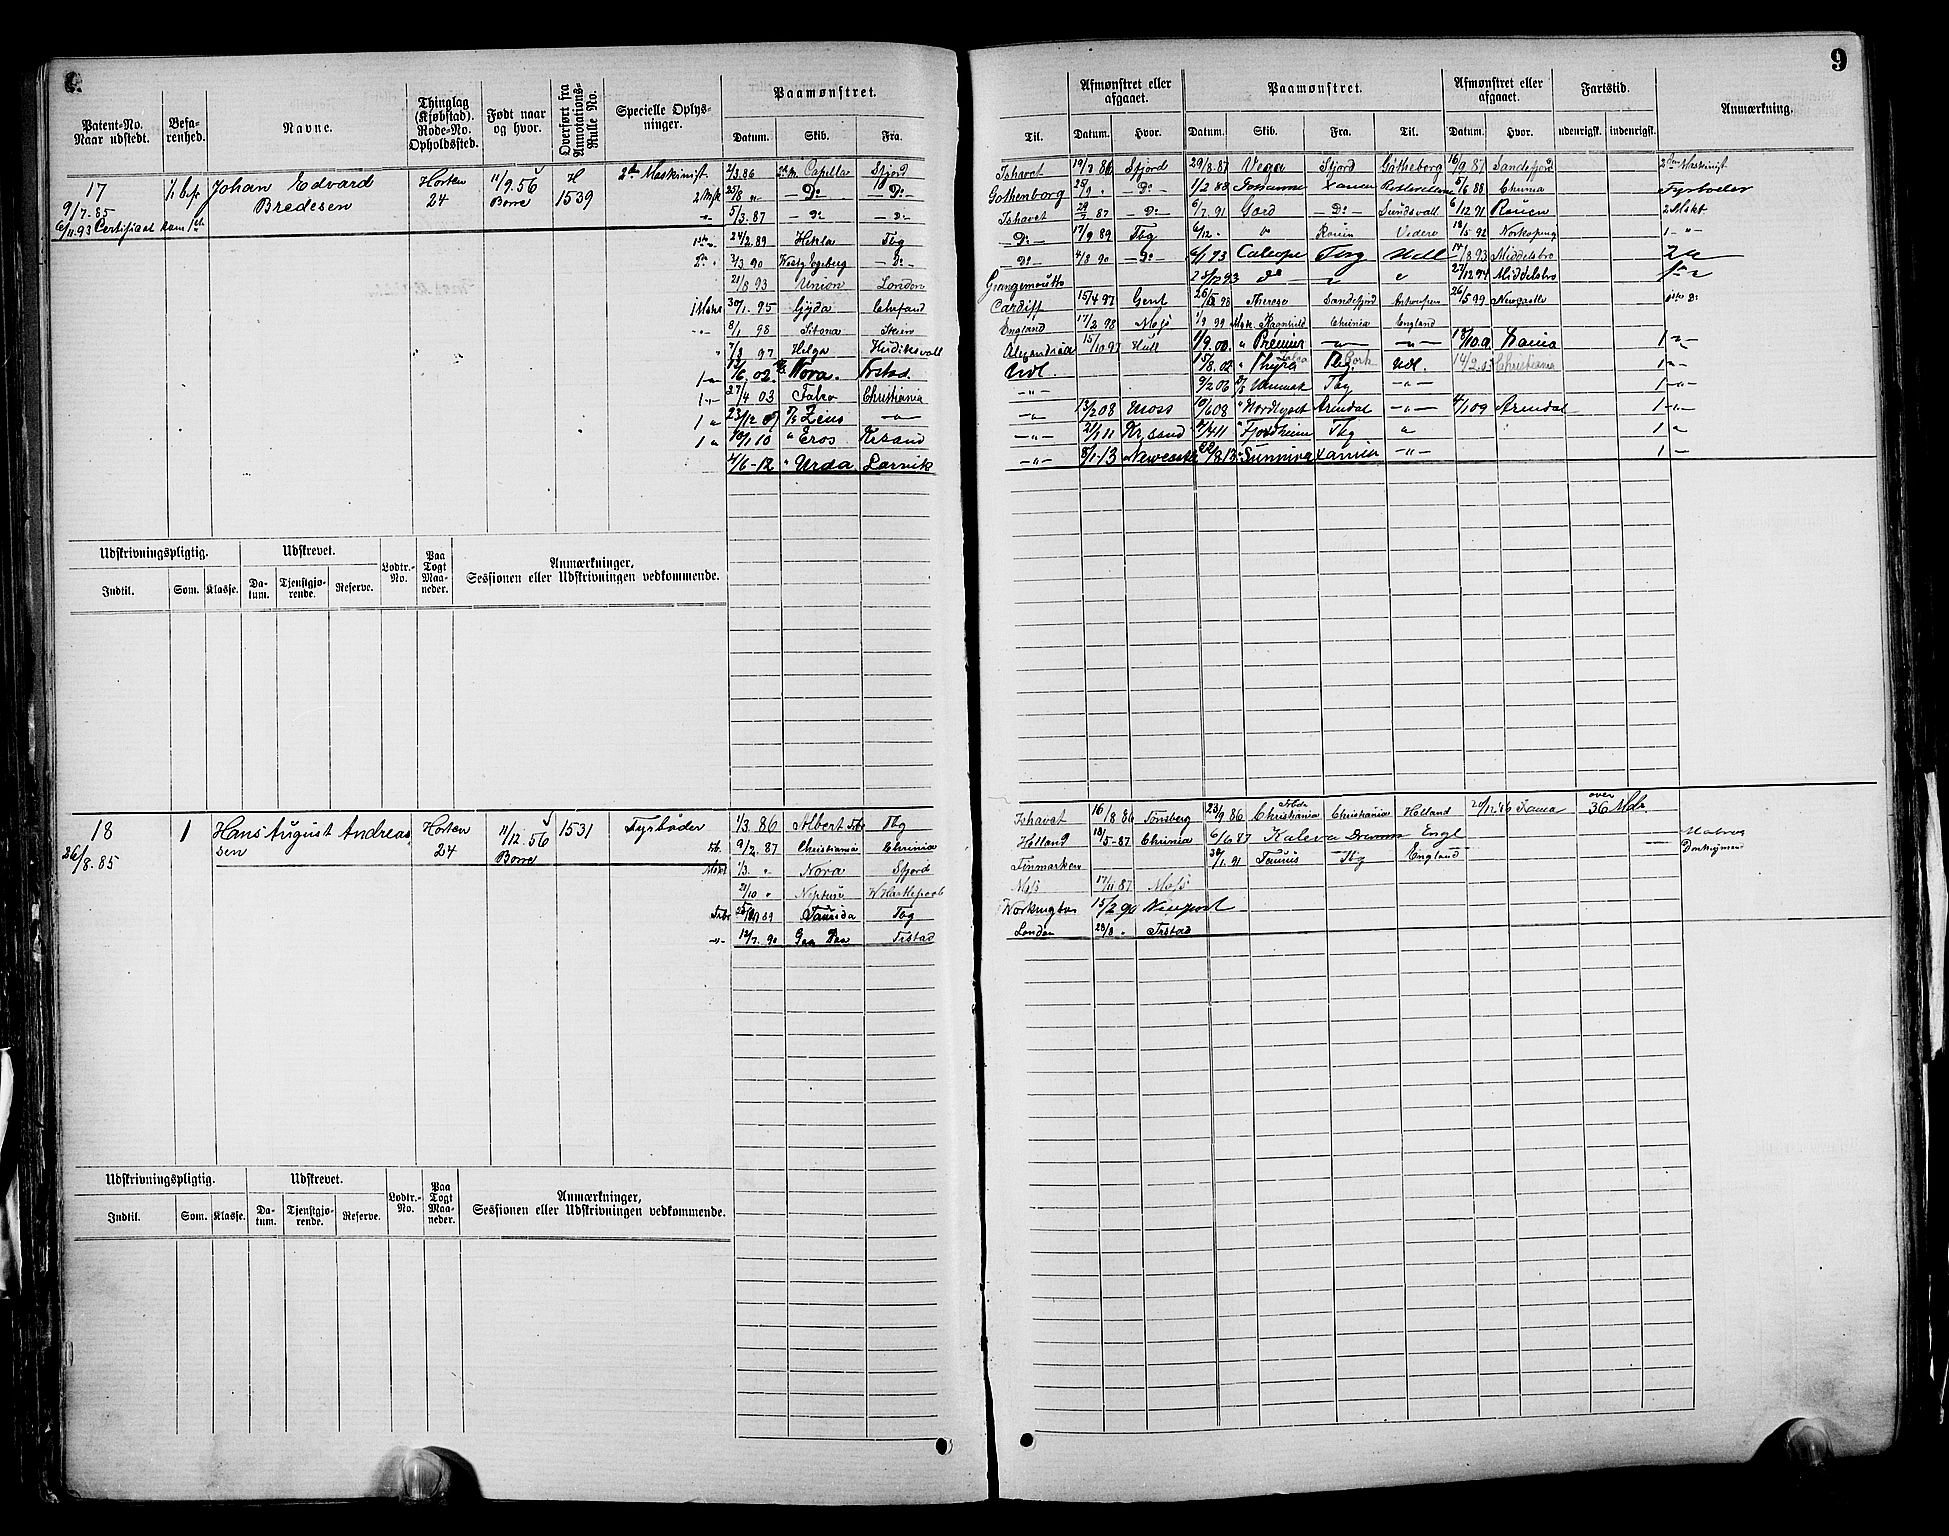 9
Patent-No. Naar udstedt.
Befarenhed.
Navne.
Thinglag (Kjøbstad). Rode-No. Opholdssted.
Født naar og hvor.
Overført fra Annotations-Rulle No.
Specielle Oplysninger.
Paamønstret.
Datum. Skib. Fra.
Til.
Afmønstret eller afgaaet.
Datum. Hvor.
Paamønstret.
Datum. Skib. Fra. Til.
Afmønstret eller afgaaet.
Datum. Hvor.
Fartstid.
udenrigsk. indenrigsk.
Anmærkning.
17 Johan Edvard Horten 11/9.56 H 2den Maskinist
9/7.85 Bredesen 24 Borre 1539
6/11.93 Certifiaat som 1ste
2/3.86 Capella Sfjord Ishavet 19/8 86 Sfjord 29/8.87 Vega Sfjord Gøtheborg 16/9.87 Sandefjord 2den Maskinist
25/8 " — Do — — Do — Gothenborg 25/9 " — Do — 1/2 88 Johanne 5/6 88 Chrinia Fyrbøder
5/3.87 — Do — — Do — Ishavet 87 — Do — 6/7.91 — Do — Sundsvall 6/12 91 Rouen 2 Mskt
24/2.89 Hekla Tbg — Do — 17/9 89 Tbg 6/12 " Rouen 92 Norkøping 1 — " —
3/3 90 — Do — — Do — 4/8 90 — Do — Caliope 14/8 93 Middelsbro
21/8 93 Union London Grangemouth 25/12 93 do 27/12 94 Middelsbro
30/1. 95 Gyda Cardiff 15/4 97 Gent 98 Therese Sandefjord Antwerpen 26/5 99 Newcastle
8/1 98 Skien England 17/2 98 Moss 1/9 99 Ragnhild Chrinia England
97 Helga Hudiksvall Alexandria 15/10 97 Hull 1/9.00. " Premier 10.0 1 — " —
1 — " — 16. 02. Nora. Frstad. Udl. 15/8.02 " Thyra Tbg. Udl. 14/2.03 Christiania 1 — " —
1 — " — 27/4 03 Falko Christiania — " — 9/2 06 Tbg — " — 1 — " —
1 " 23/12 07 Zeus — " — — " — 13/2 08 Moss 10/6 08 " Nordlyset Arendal — " — 4/1 09 Arendal 1 — " —
1 " 1.10 " Eros Krsand — " — 21/1 11 Krsand 4 11 " Fjordheim Tbg " 1 "
4/6-12 " Urda Larvik — " — 8/1-13 Newcastle 22/8.13 " Sunniva — " — 1 —
Udskrivningspligtig. Udskrevet. Lodtr.-No. Paa Togt Maaneder. Anmærkninger, Sessionen eller Udskrivningen vedkommende.
Indtil. Som. Klasse. Datum. Tjenstgjørende. Reserve.
18 1 Hans August Andreas Horten 11/12.56 1531 Fyrbøder
26/8.85 sen 24 Borre
1/3.86 Albert Tbg Ishavet 16/8 86 Tønsberg 23/9 86 Christiania Christiania Holland 20/12 86 over 36 Mdr.
9/2.87 Christiania Chrinia Holland 18/5-87 Chrinia 6/6 87 Kaleva Drammen Engl
1/3. " Nora Sfjord Finmarken 91 Taurus Tbg England
21/10 " Neptune W. Hartlepool Moss 17/11 87 Moss
89 Taurida Tbg Workington 15/2 90 Newport
12/7. 90 Frstad London 23/8 " Frstad
Udskrivningspligtig. Udskrevet. Lodtr.-No. Paa Togt Maaneder. Anmærkninger, Sessionen eller Udskrivningen vedkommende.
Indtil. Som. Klasse. Datum. Tjenstgjørende. Reserve.